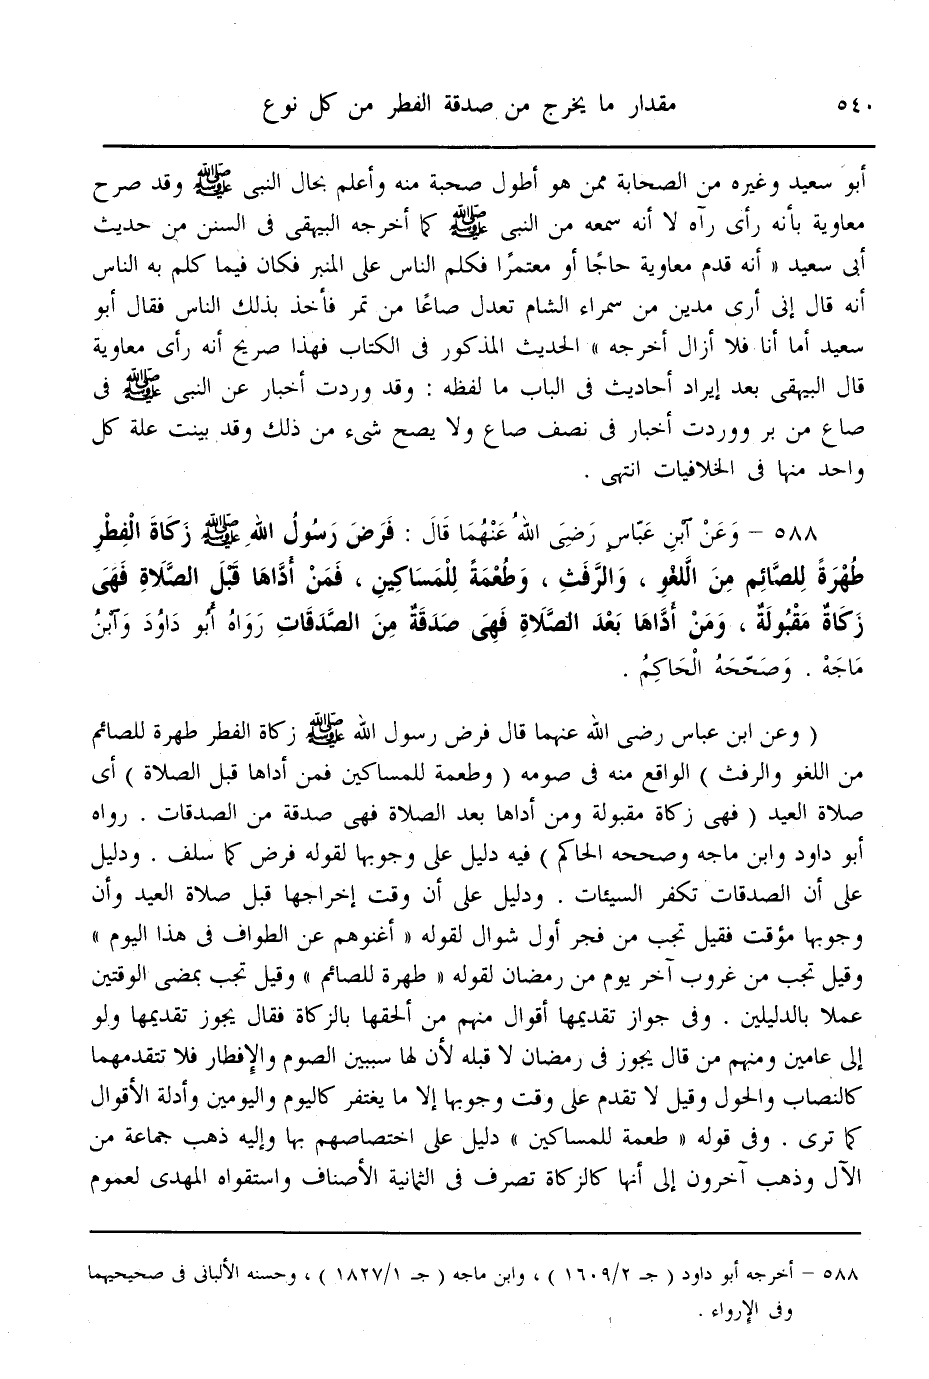 ٥٤٠ مقدار ما يخرج من صدقة الفطر من كل نوع
أبو سعيد وغيره من الصحابة ممن هو أطول صحبة منه وأعلم بحال النبى ﷺ وقد صرح
معاوية بأنه رأى رآه لا أنه سمعه من النبى ﷺ كما أخرجه البيهقى فى السنن من حديث
أبى سعيد « أنه قدم معاوية حاجًا أو معتمرًا فكلم الناس على المنبر فكان فيما كلم به الناس
أنه قال إنى أرى مدين من سمراء الشام تعدل صاعًا من تمر فأخذ بذلك الناس فقال أبو
سعيد أما أنا فلا أزال أخرجه » الحديث المذكور فى الكتاب فهذا صريح أنه رأى معاوية
قال البيهقى بعد إيراد أحاديث فى الباب ما لفظه : وقد وردت أخبار عن النبى ﷺ فى
صاع من بر ووردت أخبار فى نصف صاع ولا يصح شىء من ذلك وقد بينت علة كل
واحد منها فى الخلافيات انتهى .
٥٨٨ – وَعَنْ آبْنِ عَبّاسٍ رَضِىَ اللهُ عَنْهُمَا قَالَ : فَرَضَ رَسُولُ اللهِ ﷺ زَكَاةَ الْفِطْرِ
طُهْرَةً لِلصَّائِمِ مِنَ الَّلغْوِ ، وَالرَّفَثِ ، وَطُعْمَةً لِلْمَسَاكِينِ ، فَمَنْ أَدَّاهَا قَبْلَ الصَّلَاةِ فَهَى
زَكَاةٌ مَقْبُولَةٌ ، وَمَنْ أَدَّاهَا بَعْدَ الصَّلَاةِ فَهِىَ صَدَقَةٌ مِنَ الصَّدَقَاتِ رَوَاهُ أَبُو دَاوُدَ وَآبْنُ
مَاجَهْ . وَصَحّحَهُ الْحَاكِمُ .
( وعن ابن عباس رضى الله عنهما قال فرض رسول الله ﷺ زكاة الفطر طهرة للصائم
من اللغو والرفث ) الواقع منه فى صومه ( وطعمة للمساكين فمن أداها قبل الصلاة ) أى
صلاة العيد ( فهى زكاة مقبولة ومن أداها بعد الصلاة فهى صدقة من الصدقات . رواه
أبو داود وابن ماجه وصححه الحاكم ) فيه دليل على وجوبها لقوله فرض كما سلف . ودليل
على أن الصدقات تكفر السيئات . ودليل على أن وقت إخراجها قبل صلاة العيد وأن
وجوبها مؤقت فقيل تجب من فجر أول شوال لقوله « أغنوهم عن الطواف فى هذا اليوم »
وقيل تجب من غروب آخر يوم من رمضان لقوله « طهرة للصائم » وقيل تجب بمضى الوقتين
عملا بالدليلين . وفى جواز تقديمها أقوال منهم من ألحقها بالزكاة فقال يجوز تقديمها ولو
إلى عامين ومنهم من قال يجوز فى رمضان لا قبله لأن لها سببين الصوم والإفطار فلا تتقدمهما
كالنصاب والحول وقيل لا تقدم على وقت وجوبها إلا ما يغتفر كاليوم واليومين وأدلة الأقوال
كما ترى . وفى قوله « طعمة للمساكين » دليل على اختصاصهم بها وإليه ذهب جماعة من
الآل وذهب آخرون إلى أنها كالزكاة تصرف فى الثمانية الأصناف واستقواه المهدى لعموم
٥٨٨ – أخرجه أبو داود ( جـ ١٦٠٩/٢ ) ، وابن ماجه ( جـ ١٨٢٧/١ ) ، وحسنه الألبانى فى صحيحيهما
وفى الإرواء .